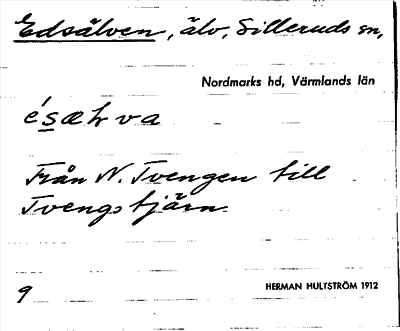 Edsälven, älv, Silleruds sn,
Nordmarks hd, Värmlands län
Från N. Tvengen till
Tvengstjärn
9
HERMAN HULTSTRÖM 1912